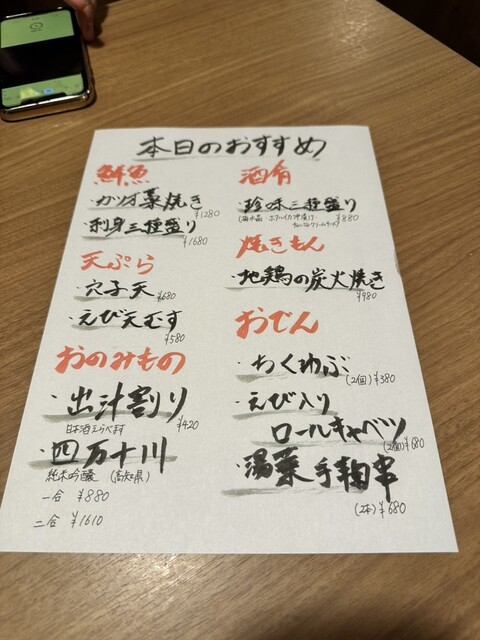 本日のおすすめ
鮮魚
・カツオ藁焼き
¥1280
・刺身三種盛り
¥1680
天ぷら
・穴子天
¥680
・えび天むす
¥580
おのみもの
・出汁割り
日本酒えらべます
¥420
・四万十川
純米吟醸 (高知県)
一合 ¥880
二合 ¥1610
酒肴
・珍味三種盛り
¥880
焼きもん
・地鶏の炭火焼き
¥980
おでん
・ちくわぶ
(2個)¥380
・えび入り
ロールキャベツ
(2個)¥680
・湯葉手鞠串
(2本)¥680